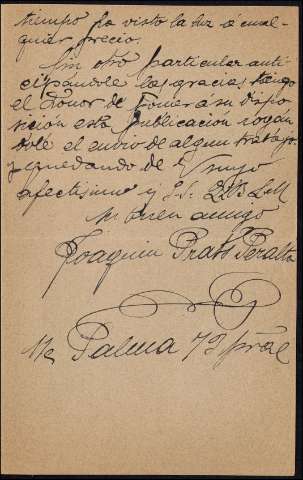 tiempo ha visto la luz a cual-
quier precio.
Sin otro particular anti-
cipándole las gracias tengo
el honor de poner a su dispo-
sición esta publicación rogán
dole el envio de algun trabajo
y quedando de V suyo
afectisimo y S.S. Q.B.S.M
su buen amigo
Joaquin Prats Peralta
Palma 72 pral